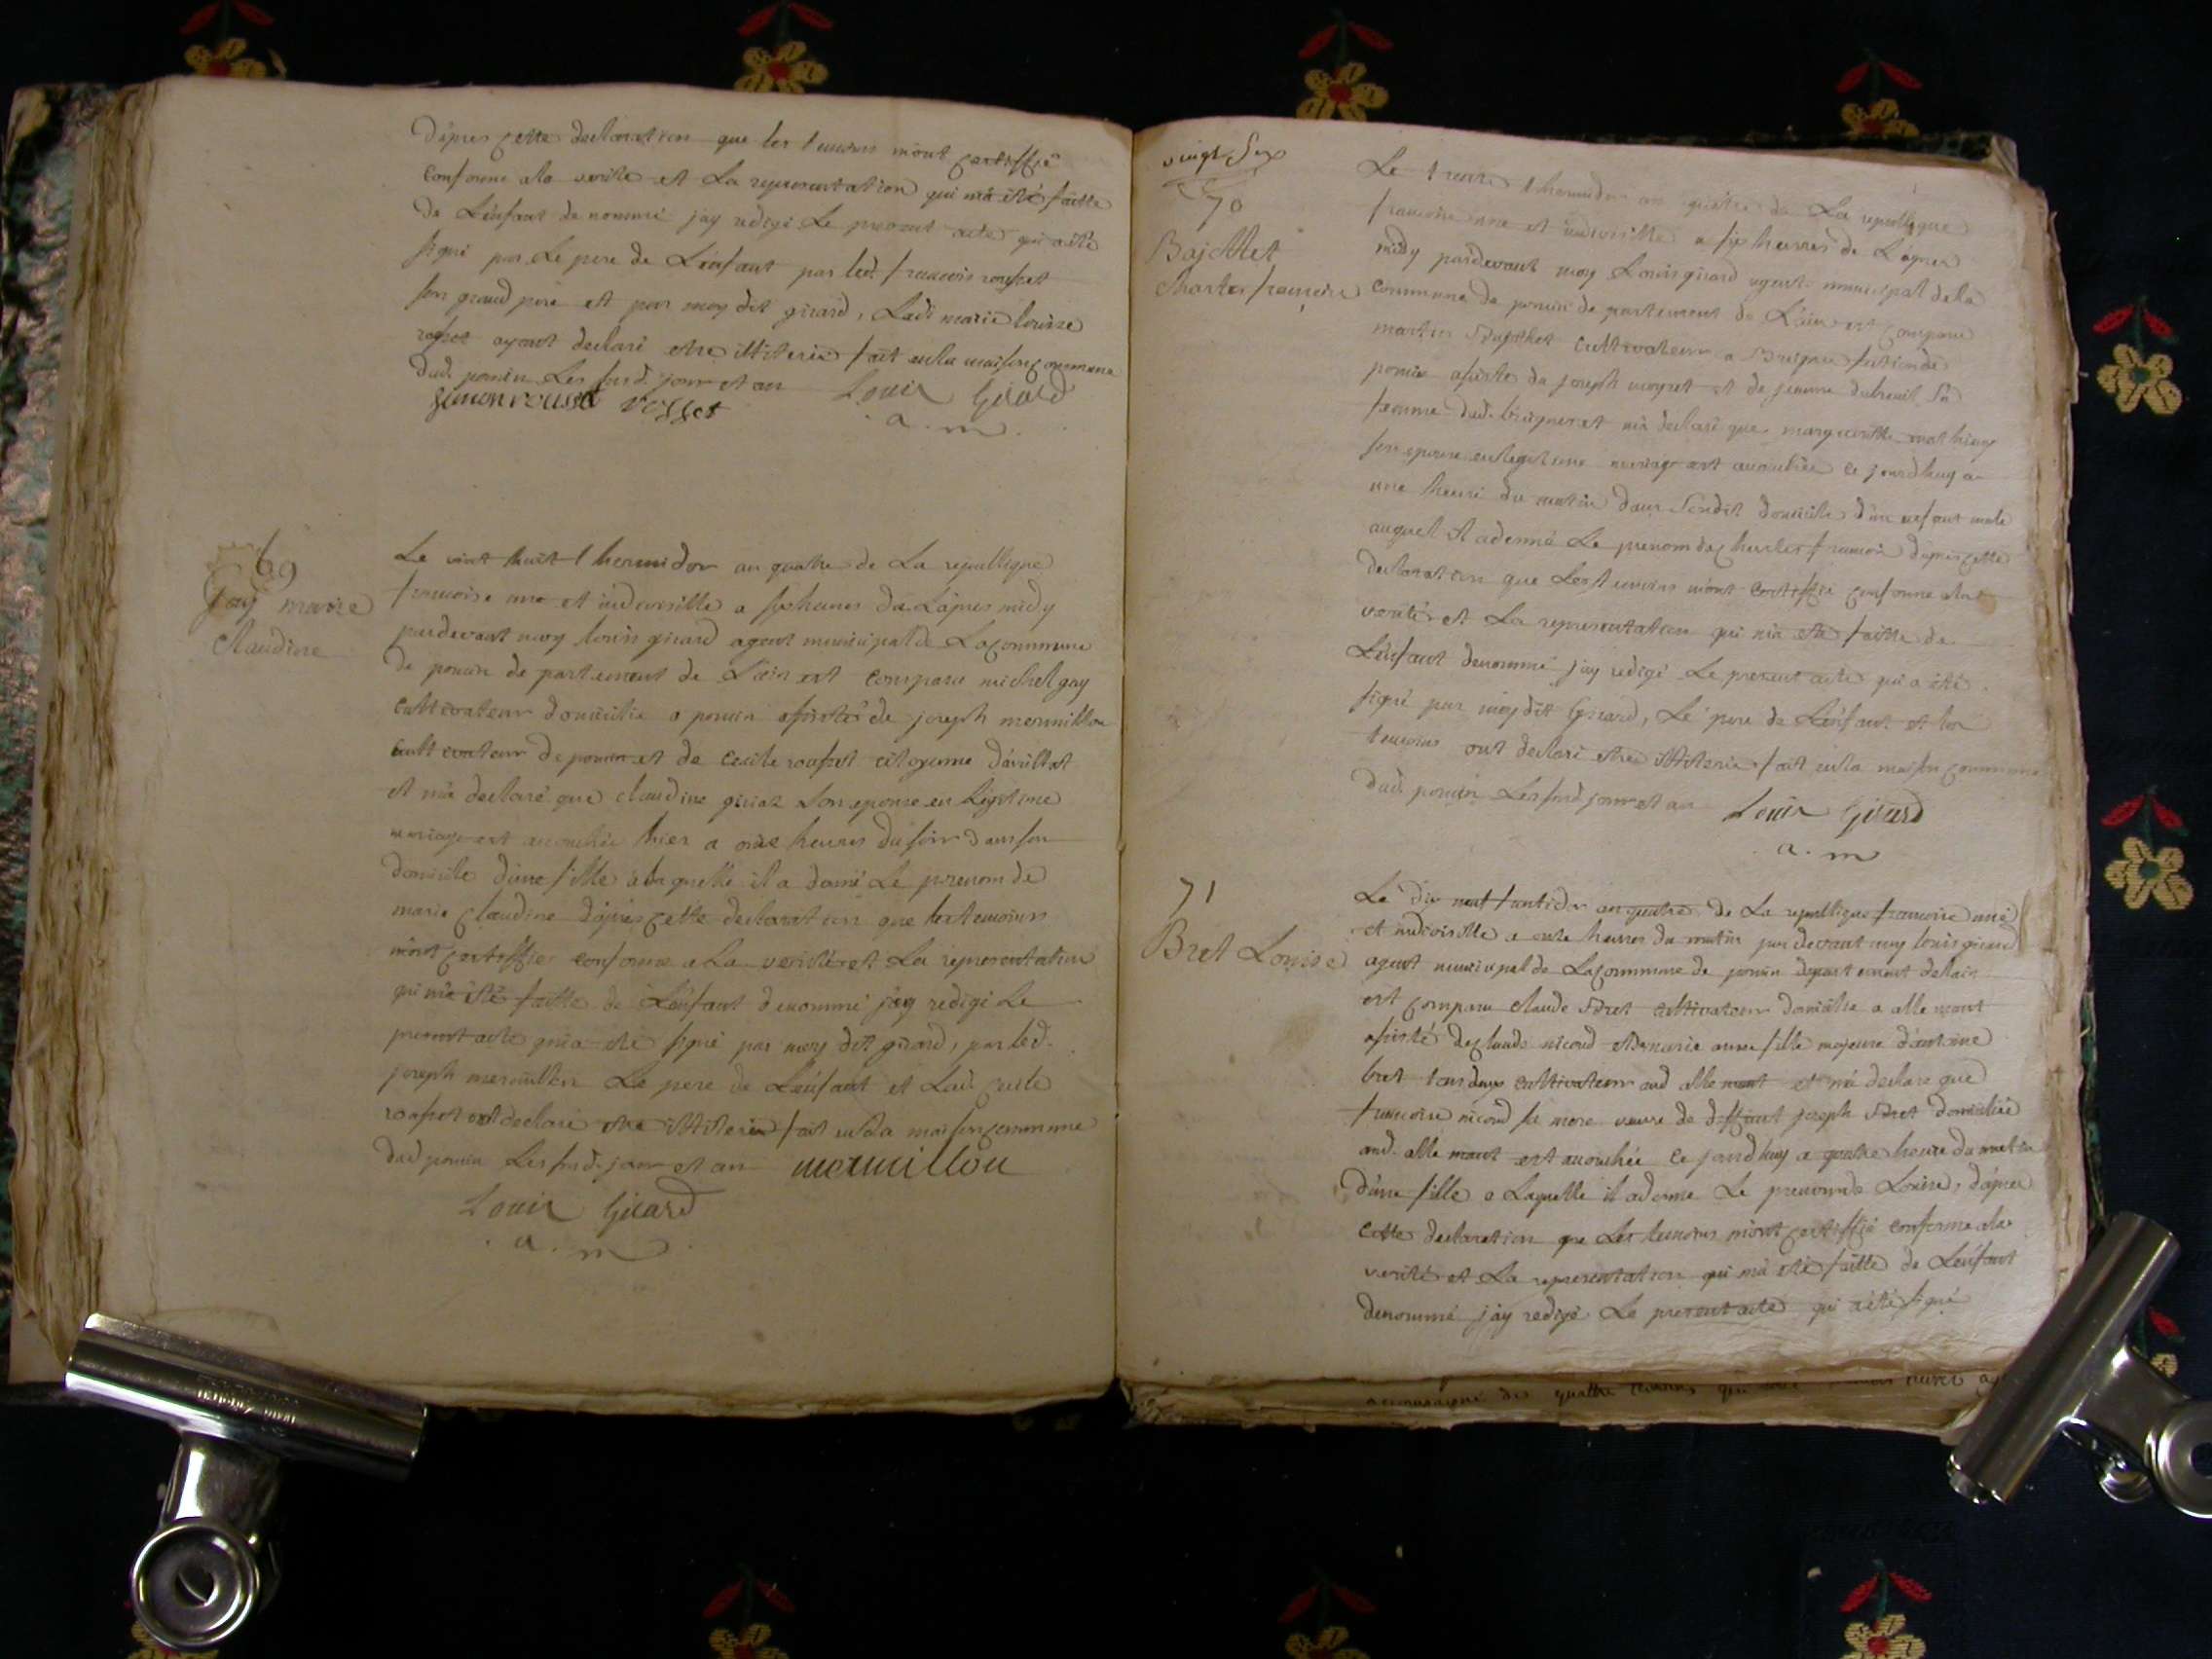 D'apres cette declaration que les temoins m'ont certiffié
conforme ala verité et La representation qui m'a été faitte
de L'enfant denommé j'ay redigé Le present acte qui a été
signé par Le pere de L'enfant par led. francois rousset
son grand pere et par moy dit girard, Lad. marie louise
rosset ayant declaré etre illiteriée fait en la maison commune
dud. poncin Les susd. jour et an Louis Girard
Simon rousset rosset
a. m.
69
Gay marie
Claudine
Le vint huit thermidor an quatre de La republique
francoise une et indivisille a six heures de L'apres midy
pardevant moy louis girard agent municipal de La commune
de poncin departement de L'ain est comparu michel gay
cultivateur domicilié a poncin assisté de joseph mermillon
cultivateur de poncin et de cecile rousset citoyenne d'avillat
et m'a declaré que claudine son epouse en Legitime
mariage est accouchée hier a onze heures du soir dans son
domicile d'une fille a laquelle il a donné Le prenom de
marie claudine d'apres cette declaration que les temoins
m'ont certiffiee conforme a La verité et La representation
qui m'a été faitte de L'enfant denommé j'ay redigé Le
present acte qui a été signé par moy dit girard, par led.
joseph mermillon Le pere de L'enfant et Lad. cecile
rousset ont declaré etre illiterié fait en la maison commune
dud poncin Les susd. jour et an mermillon
Louis Girard
a. m.
vingt Six
70
Bajollet
Charles francois
Le trente thermidor an quatre de La republique
francoise une et indivisille a six heures de L'apres
midy pardevant moy Louis girard agent municipal de la
commune de poncin departement de L'ain est comparu
martin cultivateur a section de
poncin assisté de joseph moyret et de jeanne dubreuil sa
femme dud. et m'a declaré que margueritte mathieu
son epouse en legitime mariage est accouchée ce jourd'huy a
une heure du matin dans sondit domicile d'un enfant male
auquel il a donné Le prenom de charles francois d'apres cette
declaration que Les temoins m'ont certiffié conforme ala
verité et La representation qui m'a été faitte de
L'enfant denommé j'ay redigé Le present acte qui a été
signé par moy dit Girard, Le pere de L'enfant et les
temoins ont declaré etre illiterié fait en la maison commune
dud. poncin Les susd jour et an Louis Girard
a. m
71
Bret Louise
Le dix neuf fructidor an quatre de La republique francoise une
et indivisille a onze heures du matin pardevant moy louis girard
agent municipal de La commune de poncin departement de lain
est comparu claude Bret cultivateur domicilié a allemont
assisté de claude nicoud et de marie anne fille majeure d'antoine
bret tous deux cultivateur aud allemont et m'a declaré que
francoise nicoud sa mere veuve de deffunt joseph Bret domiciliée
aud. allemont est accouchée ce jourd'huy a quatre heure du matin
d'une fille a Laquelle il a donné Le prenom de Louise, d'apres
cette declaration que Les temoins m'ont certiffié conforme ala
verité et La representation qui m'a été faitte de L'enfant
denommé j'ay redigé Le present acte qui a été signé
accompagné des quattre temoins qui